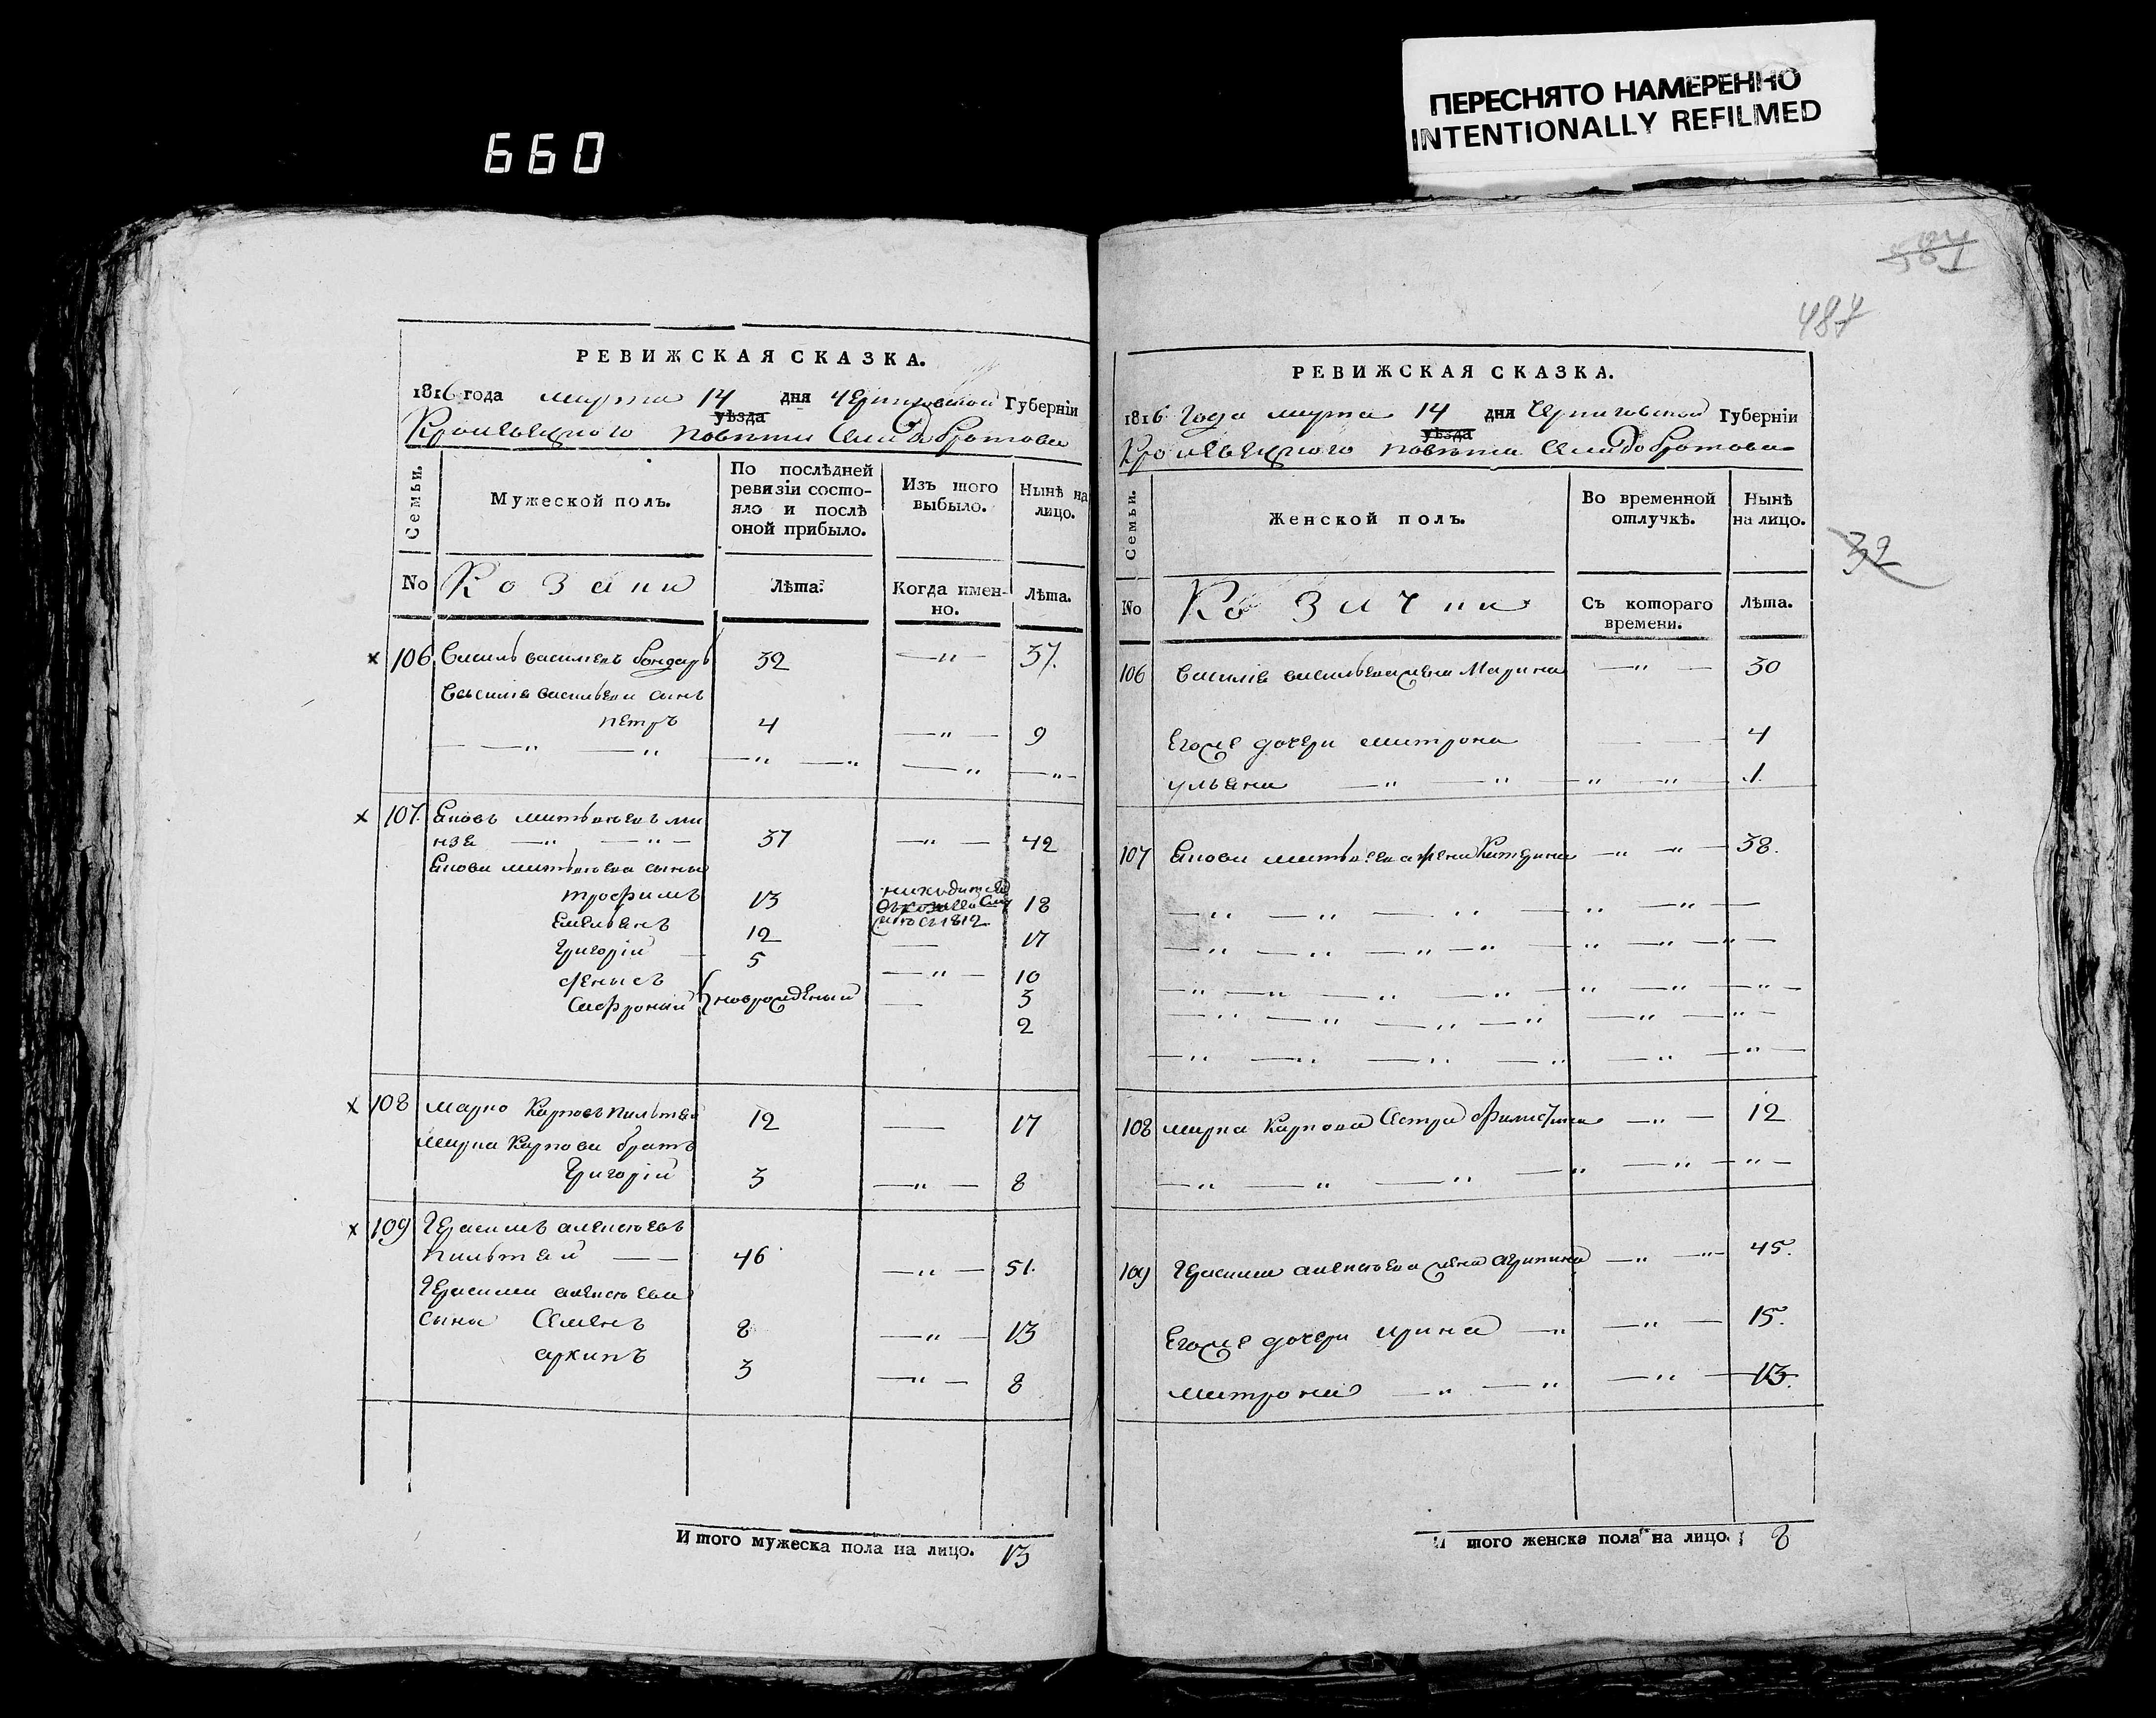 660
ПЕРЕСНЯТО НАМЕРЕННО
INTENTIONALLY REFILMED
РЕВИЖСКАЯ СКАЗКА.
1816 года марта 14 дня Черниговской Губерніи
уѣзда
Кролевецкого повѣта Села Добротова
Семьи.
Мужеской полъ.
По послѣдней
ревизіи состо-
яло и послѣ
оной прибыло.
Изъ того
выбыло.
Нынѣ на
лицо.
No Козаки Лѣта. Когда имен-
но. Лѣта.
106 Василь васильевъ бондарь 32 —"— 37.
Василія васильева сынъ
петръ 4 —"— 9
107. Яковъ матвѣевъ
37 —"— 42
Якова матвѣева сыны
трофимъ 13 18
Емельянъ 12 — 17
Григорій 5 —"— 10
денысъ 3
Сафроній новорожденыи — 2
съ 1812
108 марко Карповъ пильтяй 12 — 17
марка Карпова братъ
Григорій 3 —"— 8
109 Герасимъ алексѣевъ
пильтяй 46 —"— 51.
Герасима алексѣева
сыны Семенъ 8 —"— 13
архипъ 3 —"— 8
Итого мужеска пола на лицо. 13
584
484
РЕВИЖСКАЯ СКАЗКА.
1816 Года марта 14 дня Черниговской Губерніи
уѣзда
Кролевецкого повѣта Села Добротова
32
Семьи.
Женской полъ.
Во временной
отлучкѣ.
Нынѣ
на лицо.
No Козачки Съ котораго
времени. Лѣта.
106 Василія васильева жена Марина —"— 30
Егоже дочери матрона — — 4
ульяна —"— —"— —"— 1.
107 Якова матвѣева жена Катерина —"— 38.
108 марка Карпова Сестра —"— 12
109 Герасима алексѣева жена агрипина —"— 45.
Егоже дочери ирина —"— 15.
матрона —"— —"— 13.
Итого женска пола на лицо. 8